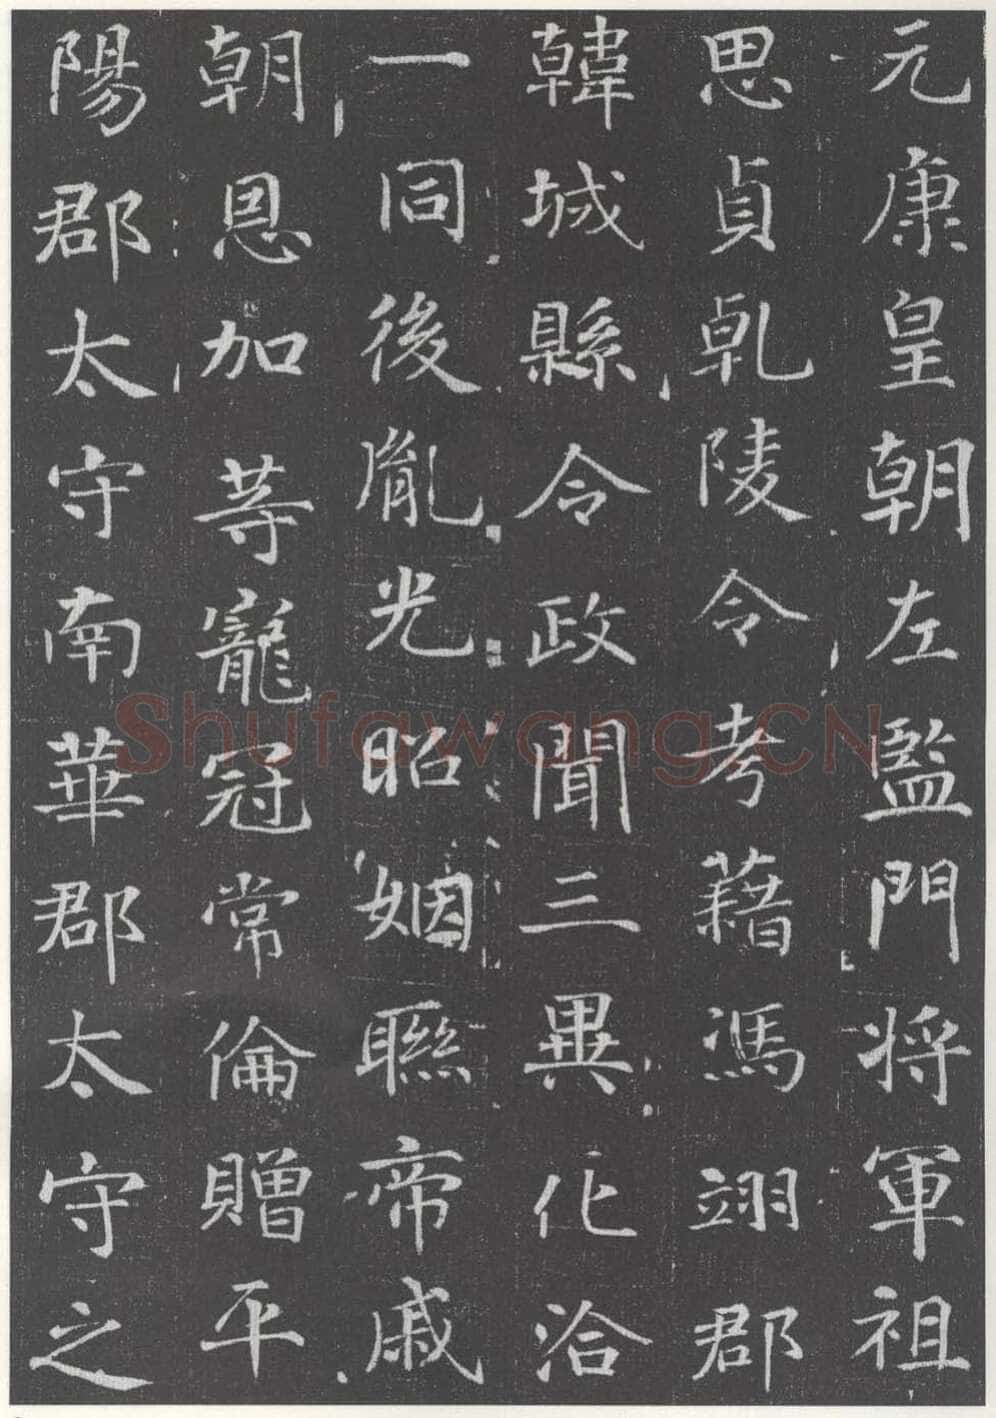 元康皇朝左監門將軍祖
思貞乹陵令考藉馮翊郡
韓城縣令政聞三異化洽
一同後胤光昭姻聯帝戚
朝恩加等寵冠常倫贈平
陽郡太守南華郡太守之
Shufawang.CN